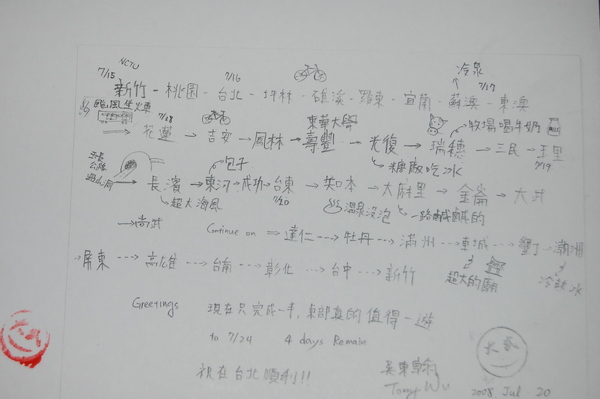 NCTU
7/15 7/16 冷泉 7/17
新竹-桃園-台北-坪林-礁溪-羅東-宜蘭-蘇澳-東澳
颱風坐火車 7/18 東華大學 牧場喝牛奶
→花蓮→吉安→鳳林→壽豐→光復→瑞穗→三民→玉里
糖廠吃冰 7/19
玉長公路 過山洞 包子
→長濱→東河→成功→台東→知本→大麻里→金崙→大武
超大海風 7/20 溫泉沒泡 一路鹹鹹的
→尚武 Continue on ⇒達仁--→牡丹--→滿州--→車城--→墾丁→潮州
超大的廟 冷熱冰
→屏東---→高雄---→台南---→彰化---→台中---→新竹
Greetings 現在只完成一半,東部真的值得一遊
to 7/24 4 days Remain
祝在台北順利!!
Tony Wu
2008 Jul 20